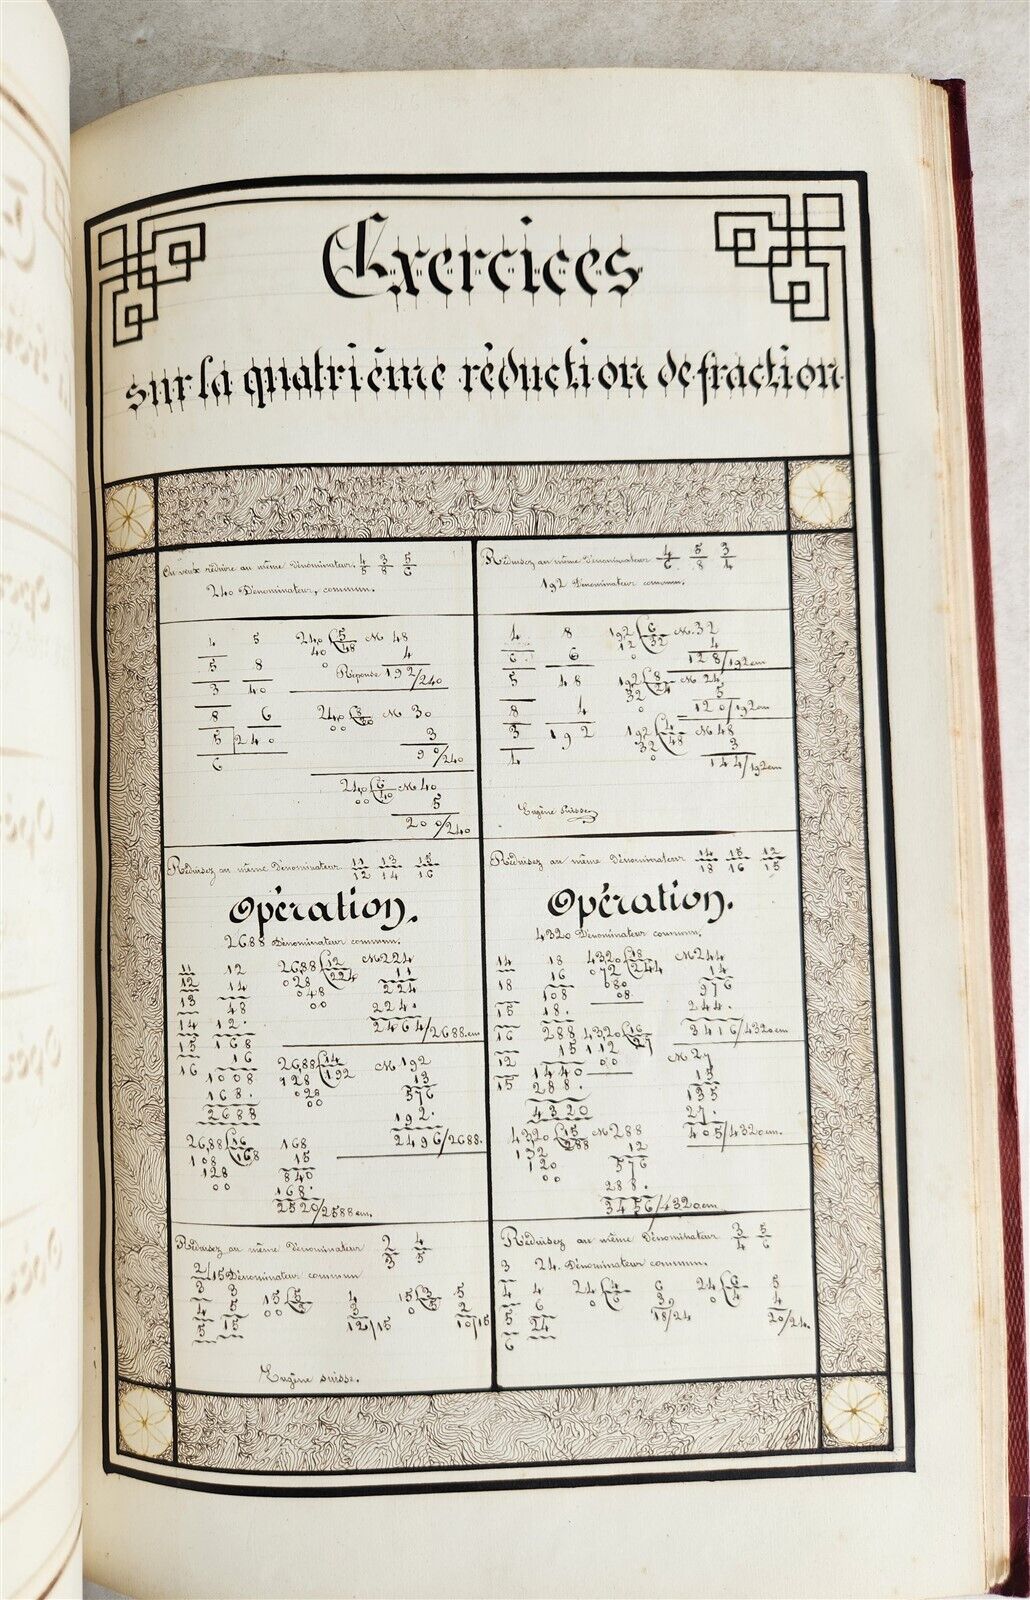 Exercices
sur la quatrième réduction de fraction
On veux réduire au même Dénominateur. 4/5 3/8 5/6
240 Dénominateur, commun.
4 5 240 5 M 48
5 8 40 48 4
0 Réponse 192/240
3 40
8 6 240 8 M 30
5 240 00 30 3
6 90/240
240 6 M 40
00 40 5
200/240
Réduisez au même Dénominateur 4/6 5/8 3/4
192 Dénominateur commun.
4 8 192 6 M. 32
6 6 12 32 4
0 128/192em
5 48 192 8 M 24
8 4 32 24 5
0 120/192em
3 192 192 4 M 48
4 32 48 3
0 144/192em
Eugène Suisse
Réduisez au même Dénominateur. 11/12 13/14 15/16
Opération.
2688 Dénominateur commun.
11 12 2688 12 M 224
12 14 028 224 11
13 48 048 224
14 12. 00 224.
15 168 2464/2688.em
16 16 2688 14 M 192
1008 128 192 13
168. 028 576
2688 00 192.
2496/2688.
2688 16 168
108 168 15
128 840
00 168.
2520/2588em.
Réduisez au même Dénominateur 14/18 15/16 12/15
Opération.
4320 Dénominateur commun.
14 18 4320 18 M 244
18 16 072 244 14
108 080 976
15 18. 08. 244.
16 288 4320 16 3416/4320em
12 15 112 27 M 27
15 1440 00 15
288. 135
4320 27.
4320 15 M 288 405/4320em.
132 288 12
120 576
00 288.
3456/4320em
Réduisez au même Dénominateur 2/3 4/5
2/15 Dénominateur commun
3 3 15 5 4 15 3 5
4 5 00 3 3 0 5 2
5 15 12/15 10/15
Eugène suisse.
Réduisez au même Dénominateur 3/4 5/6
3 24. Dénominateur commun.
4 4 24 4 6 24 6 5
5 6 0 6 3 0 4 4
6 24 18/24 20/24.